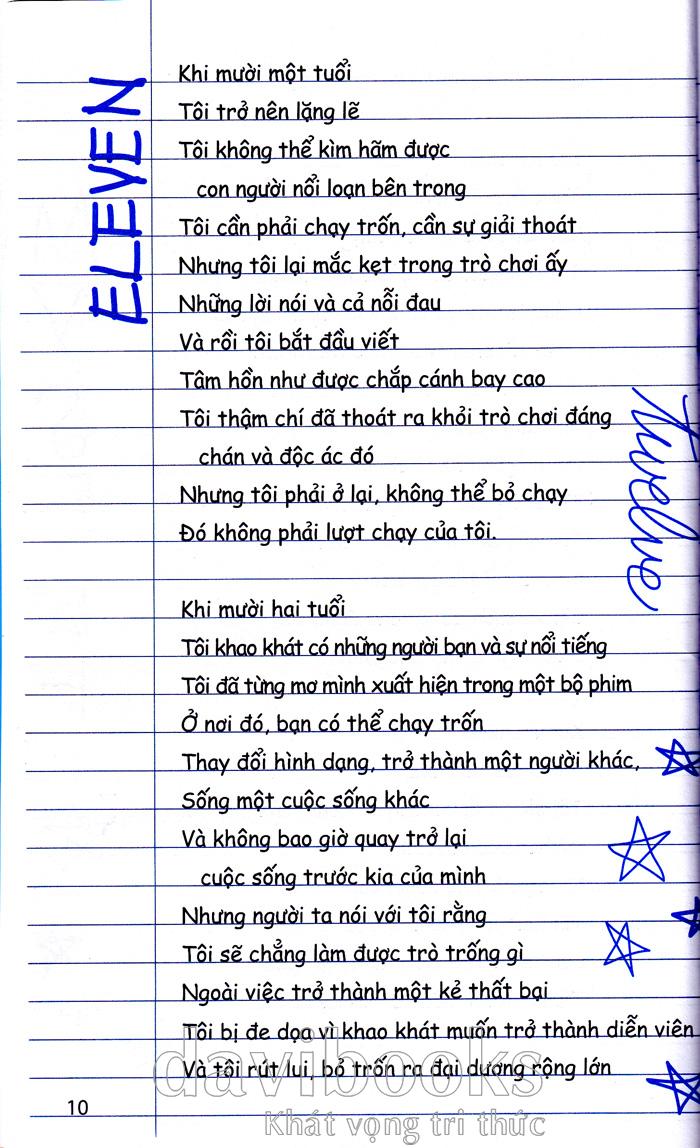 ELEVEN
Khi mười một tuổi
Tôi trở nên lặng lẽ
Tôi không thể kìm hãm được
con người nổi loạn bên trong
Tôi cần phải chạy trốn, cần sự giải thoát
Nhưng tôi lại mắc kẹt trong trò chơi ấy
Những lời nói và cả nỗi đau
Và rồi tôi bắt đầu viết
Tâm hồn như được chắp cánh bay cao
Tôi thậm chí đã thoát ra khỏi trò chơi đáng
chán và độc ác đó
Nhưng tôi phải ở lại, không thể bỏ chạy
Đó không phải lượt chạy của tôi.
Twelve
Khi mười hai tuổi
Tôi khao khát có những người bạn và sự nổi tiếng
Tôi đã từng mơ mình xuất hiện trong một bộ phim
Ở nơi đó, bạn có thể chạy trốn
Thay đổi hình dạng, trở thành một người khác,
Sống một cuộc sống khác
Và không bao giờ quay trở lại
cuộc sống trước kia của mình
Nhưng người ta nói với tôi rằng
Tôi sẽ chẳng làm được trò trống gì
Ngoài việc trở thành một kẻ thất bại
Tôi bị đe dọa vì khao khát muốn trở thành diễn viên
Và tôi rút lui, bỏ trốn ra đại dương rộng lớn
10
davibooks
Khát vọng tri thức